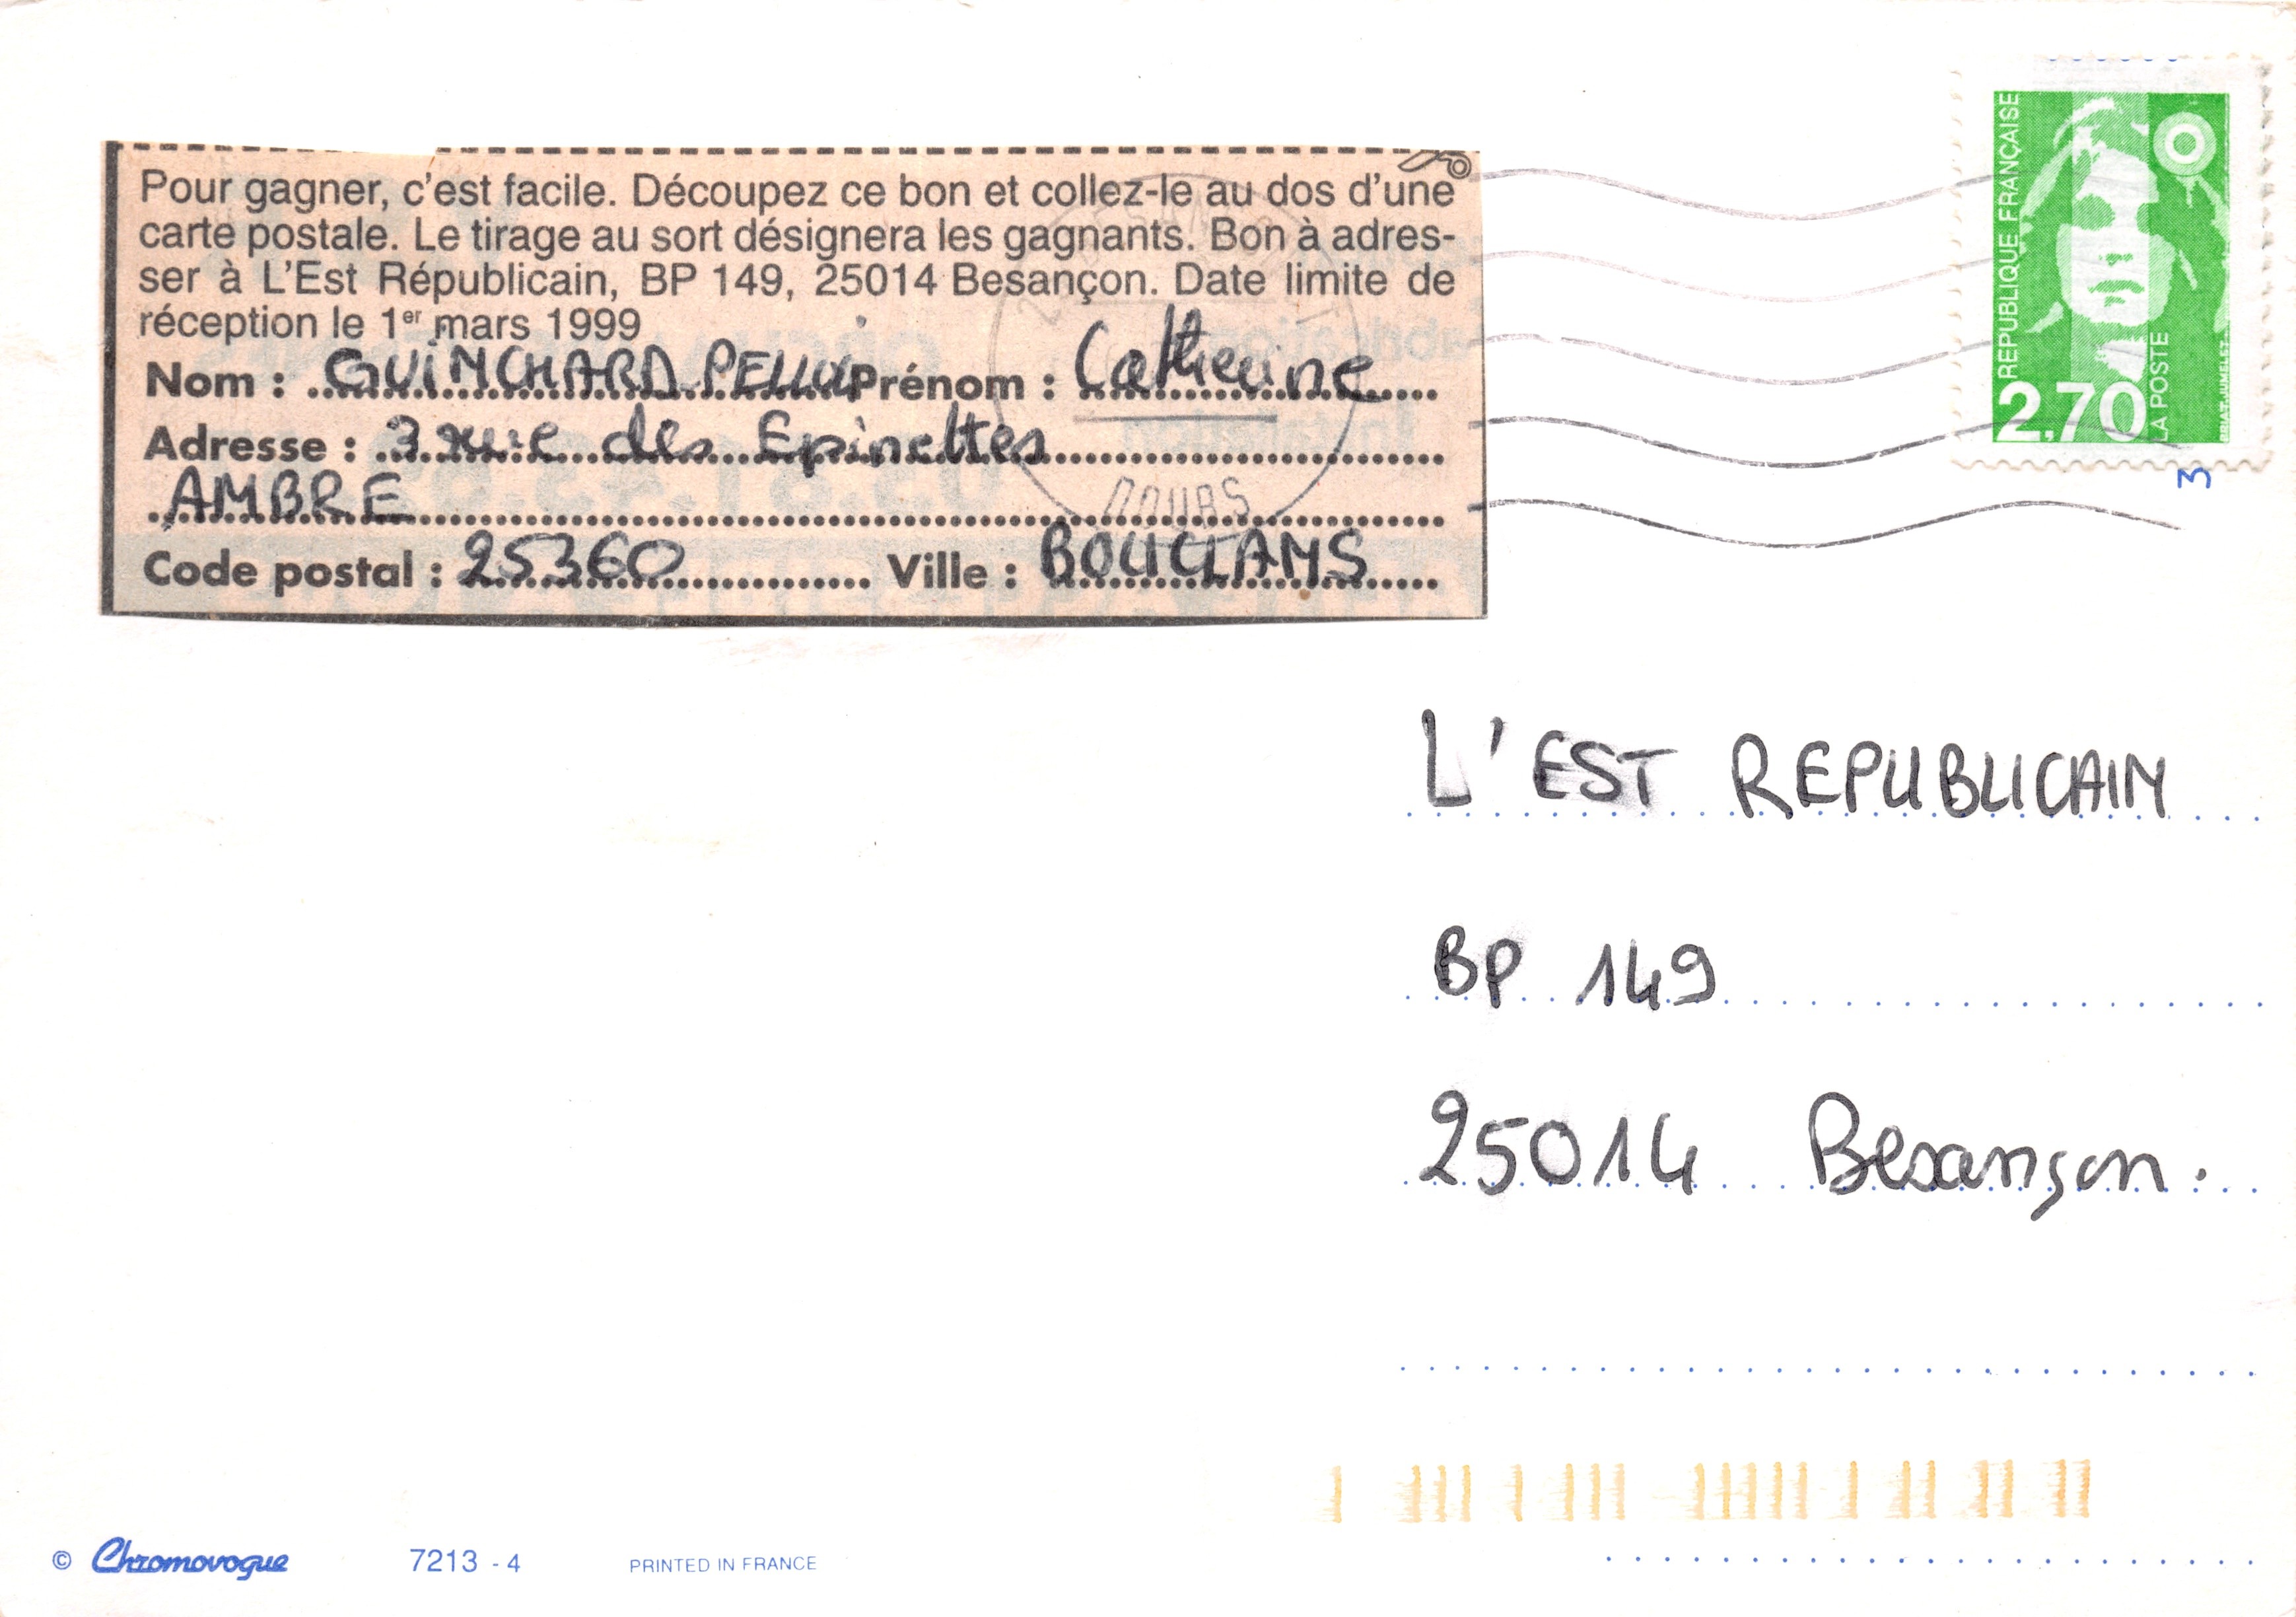 Pour gagner, c'est facile. Découpez ce bon et collez-le au dos d'une
carte postale. Le tirage au sort désignera les gagnants. Bon à adres-
ser à L'Est Républicain, BP 149, 25014 Besançon. Date limite de
réception le 1er mars 1999
Nom : GUINCHARD Prénom : Catherine
Adresse : 3 rue des Epinettes
AMBRE
Code postal : 25360 Ville : BOUCLANS
DOUBS
RÉPUBLIQUE FRANÇAISE
2,70
LA POSTE
BRIAT-JUMELET
3
L'EST REPUBLICAIN
BP 149
25014 Besançon.
© Chromovogue 7213 - 4 PRINTED IN FRANCE